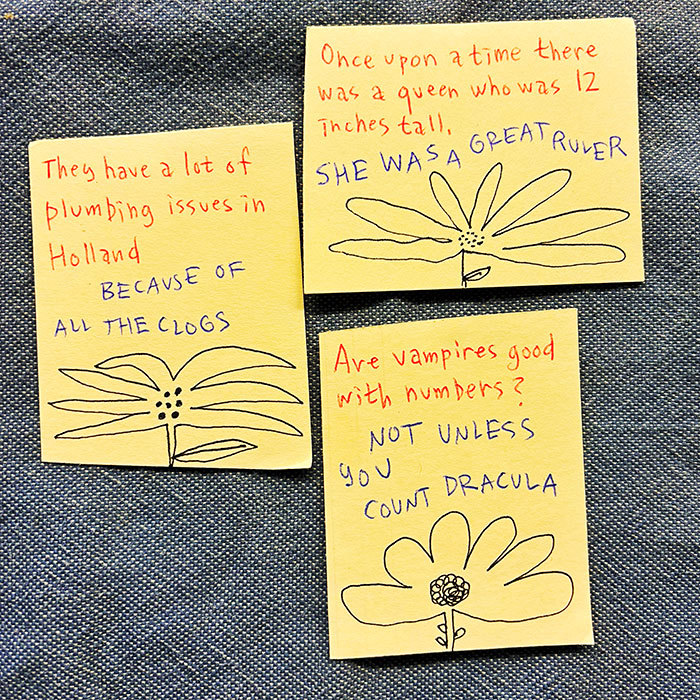 They have a lot of
plumbing issues in
Holland
BECAUSE OF
ALL THE CLOGS
Once upon a time there
was a queen who was 12
inches tall.
SHE WAS A GREAT RULER
Are vampires good
with numbers?
NOT UNLESS
YOU
COUNT DRACULA